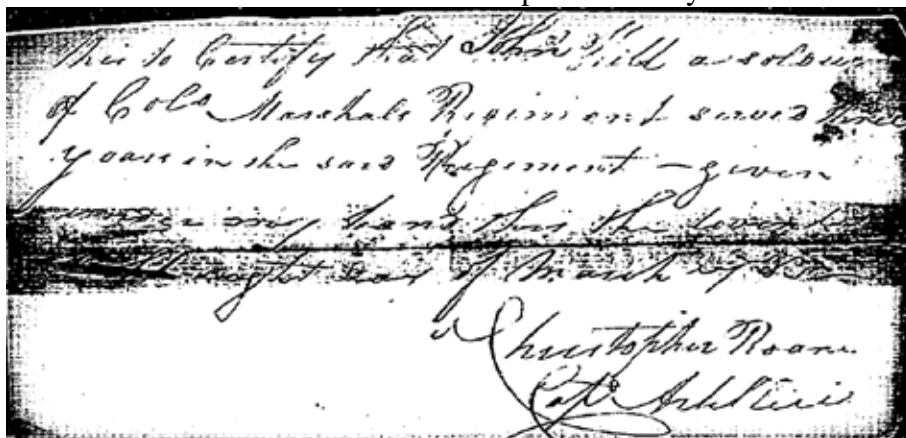 This to Certify that John Field a soldier
of Colo Marshals Regiment served three
years in the said Regiment - given
under my hand this the twenty
eight day of March 178
Christopher Roane
Capt Artilleris